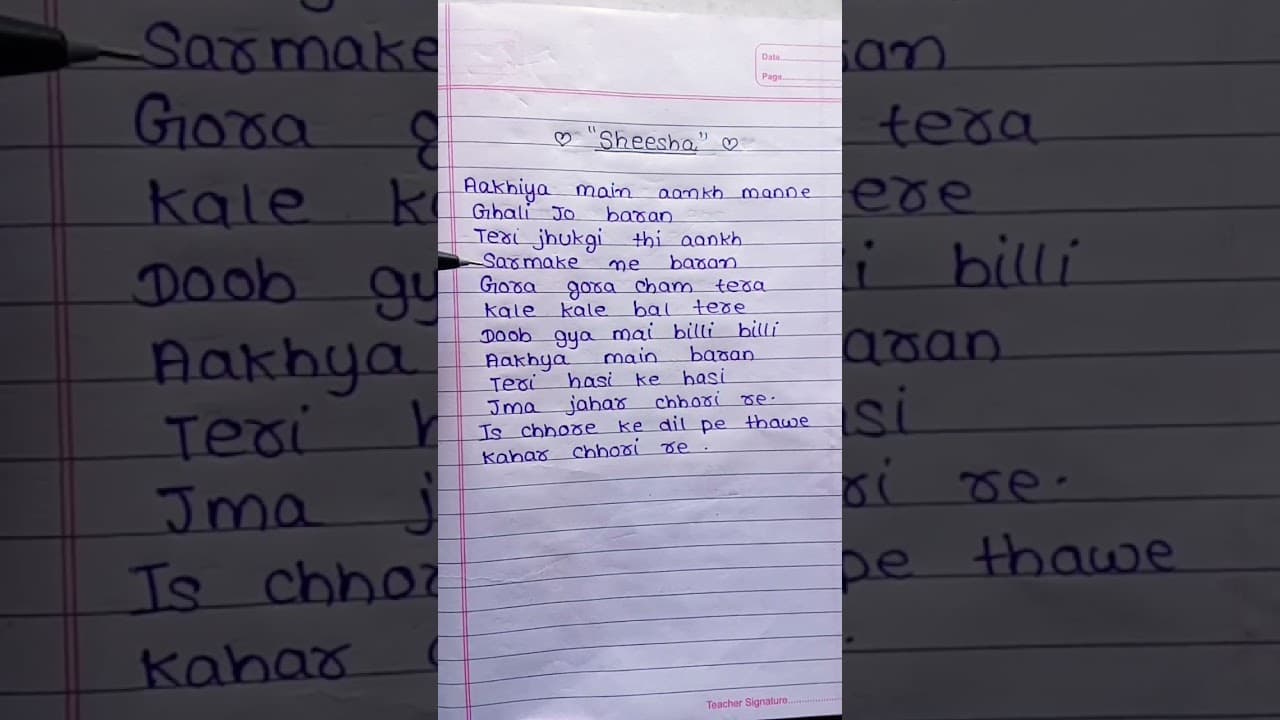 Date
Page
♡ "Sheesha" ♡
Aakhiya main aankh manne
Ghali Jo baran
Teri jhukgi thi aankh
Sarmake ne baran
Gora gora cham tera
Kale kale bal tere
Doob gya mai billi billi
Aakhya main baran
Teri hasi ke hasi
Jma jahar chhori re.
Is chhore ke dil pe thawe
Kahar chhori re .
Teacher Signature